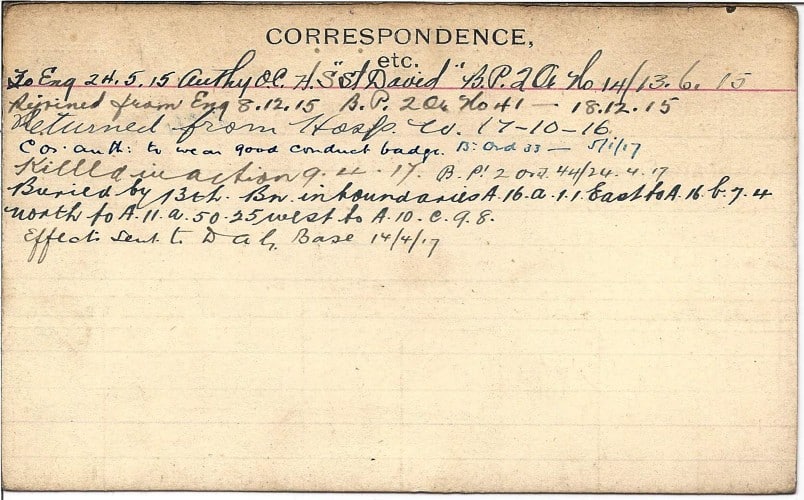 CORRESPONDENCE,
etc.
To Eng 24.5.15 Authy O.C. H.S "St David" B.P. 2 Or No 14/13.6.15
Rejoined from Eng 8.12.15 B.P. 2 Or No 41 — 18.12.15
Returned from Hosp. 17-10-16
C os. auth: to wear good conduct badge. B. Ord 33 — 5/1/17
Killed in action 9.4.17. B.P. 2 Ord. 44/24.4.17
Buried by 13th. Bn. in boundaries A.16.a.1.1 East to A.16.b.7.4
north to A.11.a.50.25 west to A.10.c.9.8.
Effects Sent to D A G Base 14/4/17